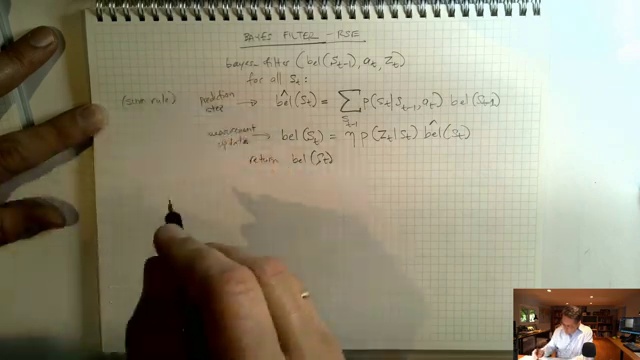 BAYES FILTER - RSE
bayes filter (bel(s_{t-1}), a_t, z_t)
for all s_t:
(sum rule) prediction step → \hat{bel}(s_t) = \sum_{s_{t-1}} p(s_t | s_{t-1}, a_t) bel(s_{t-1})
measurement update → bel(s_t) = η p(z_t | s_t) \hat{bel}(s_t)
return bel(s_t)